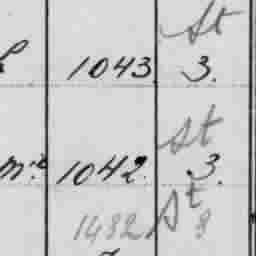 St
1043. 3.
St
m.r 1042. 3.
1482 St 8